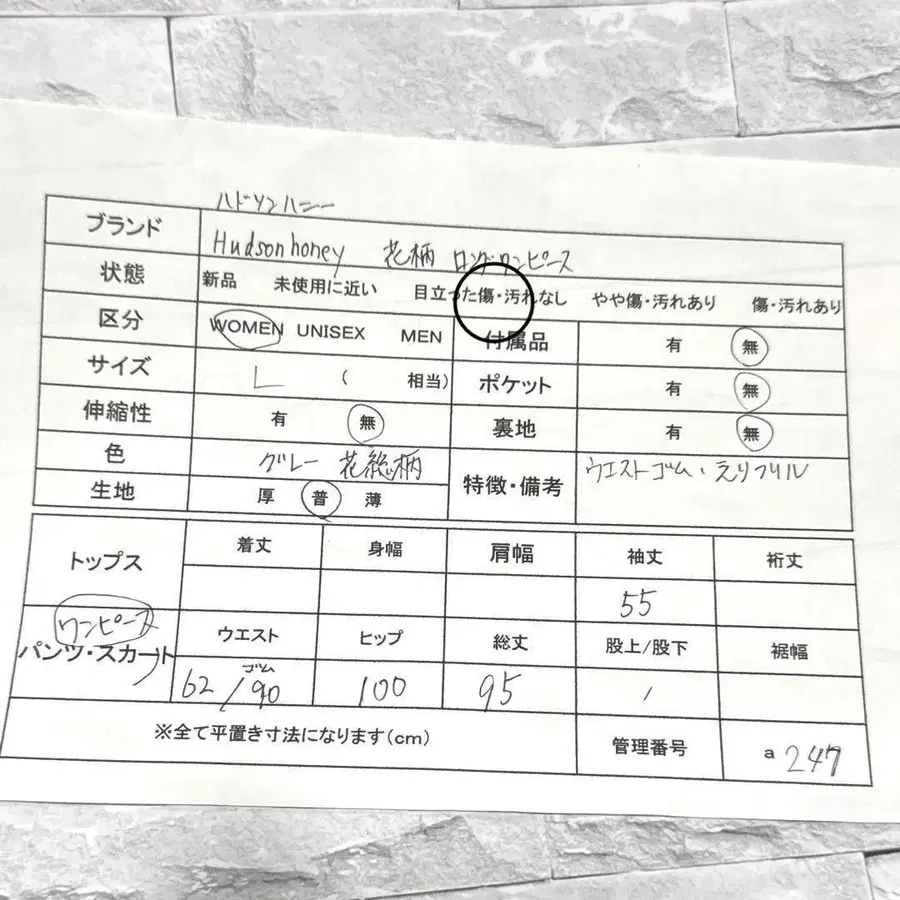 ハドソンハニー
ブランド Hudson honey 花柄 ロングワンピース
状態 新品 未使用に近い 目立った傷・汚れなし やや傷・汚れあり 傷・汚れあり
区分 WOMEN UNISEX MEN 付属品 有 無
サイズ L ( 相当) ポケット 有 無
伸縮性 有 無 裏地 有 無
色 グレー 花総柄 特徴・備考 ウエストゴム・えりフリル
生地 厚 普 薄
トップス 着丈 身幅 肩幅 袖丈 裄丈
55
ワンピース
パンツ・スカート ウエスト ヒップ 総丈 股上/股下 裾幅
ゴム
62/90 100 95 /
※全て平置き寸法になります(cm) 管理番号 a 247